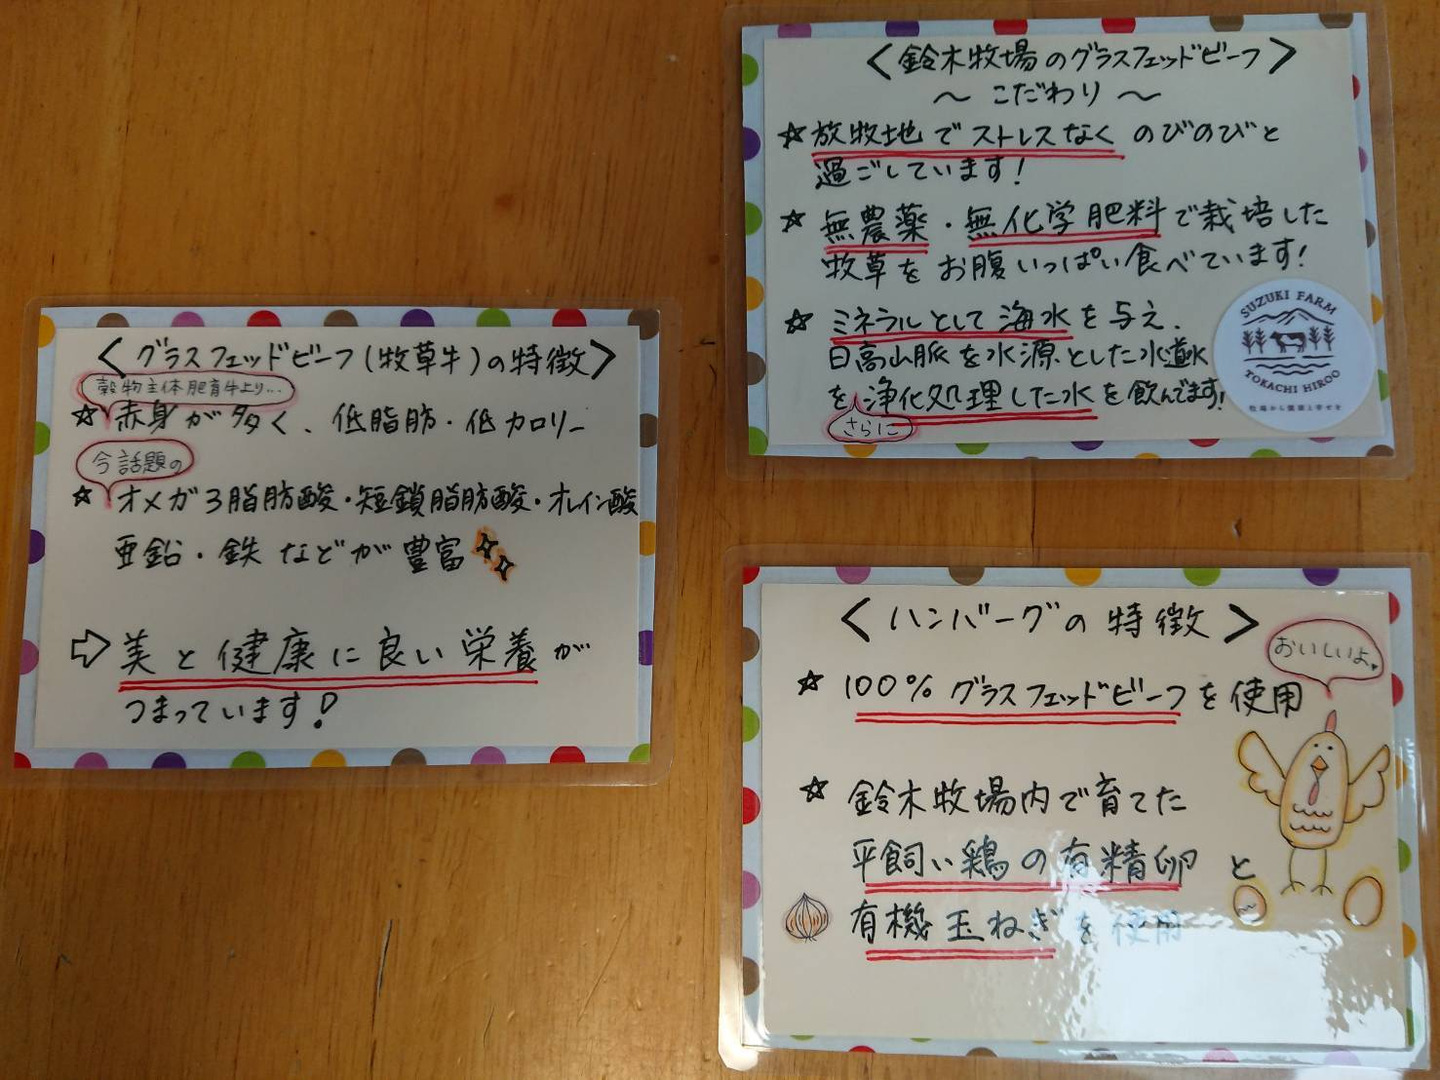 <グラスフェッドビーフ(牧草牛)の特徴>
穀物主体肥育牛より...
☆赤身が多く、低脂肪・低カロリー
今話題の
☆オメガ3脂肪酸・短鎖脂肪酸・オレイン酸
亜鉛・鉄などが豊富
⇨美と健康に良い栄養が
つまっています!
<鈴木牧場のグラスフェッドビーフ>
～こだわり～
☆放牧地でストレスなくのびのびと
過ごしています!
☆無農薬・無化学肥料で栽培した
牧草をお腹いっぱい食べています!
☆ミネラルとして海水を与え、
日高山脈を水源とした水道水
を浄化処理した水を飲んでます!
さらに
SUZUKI FARM
TOKACHI HIROO
牧場から健康と幸せを
<ハンバーグの特徴>
おいしいよ♥
☆100%グラスフェッドビーフを使用
☆鈴木牧場内で育てた
平飼い鶏の有精卵と
有機玉ねぎを使用